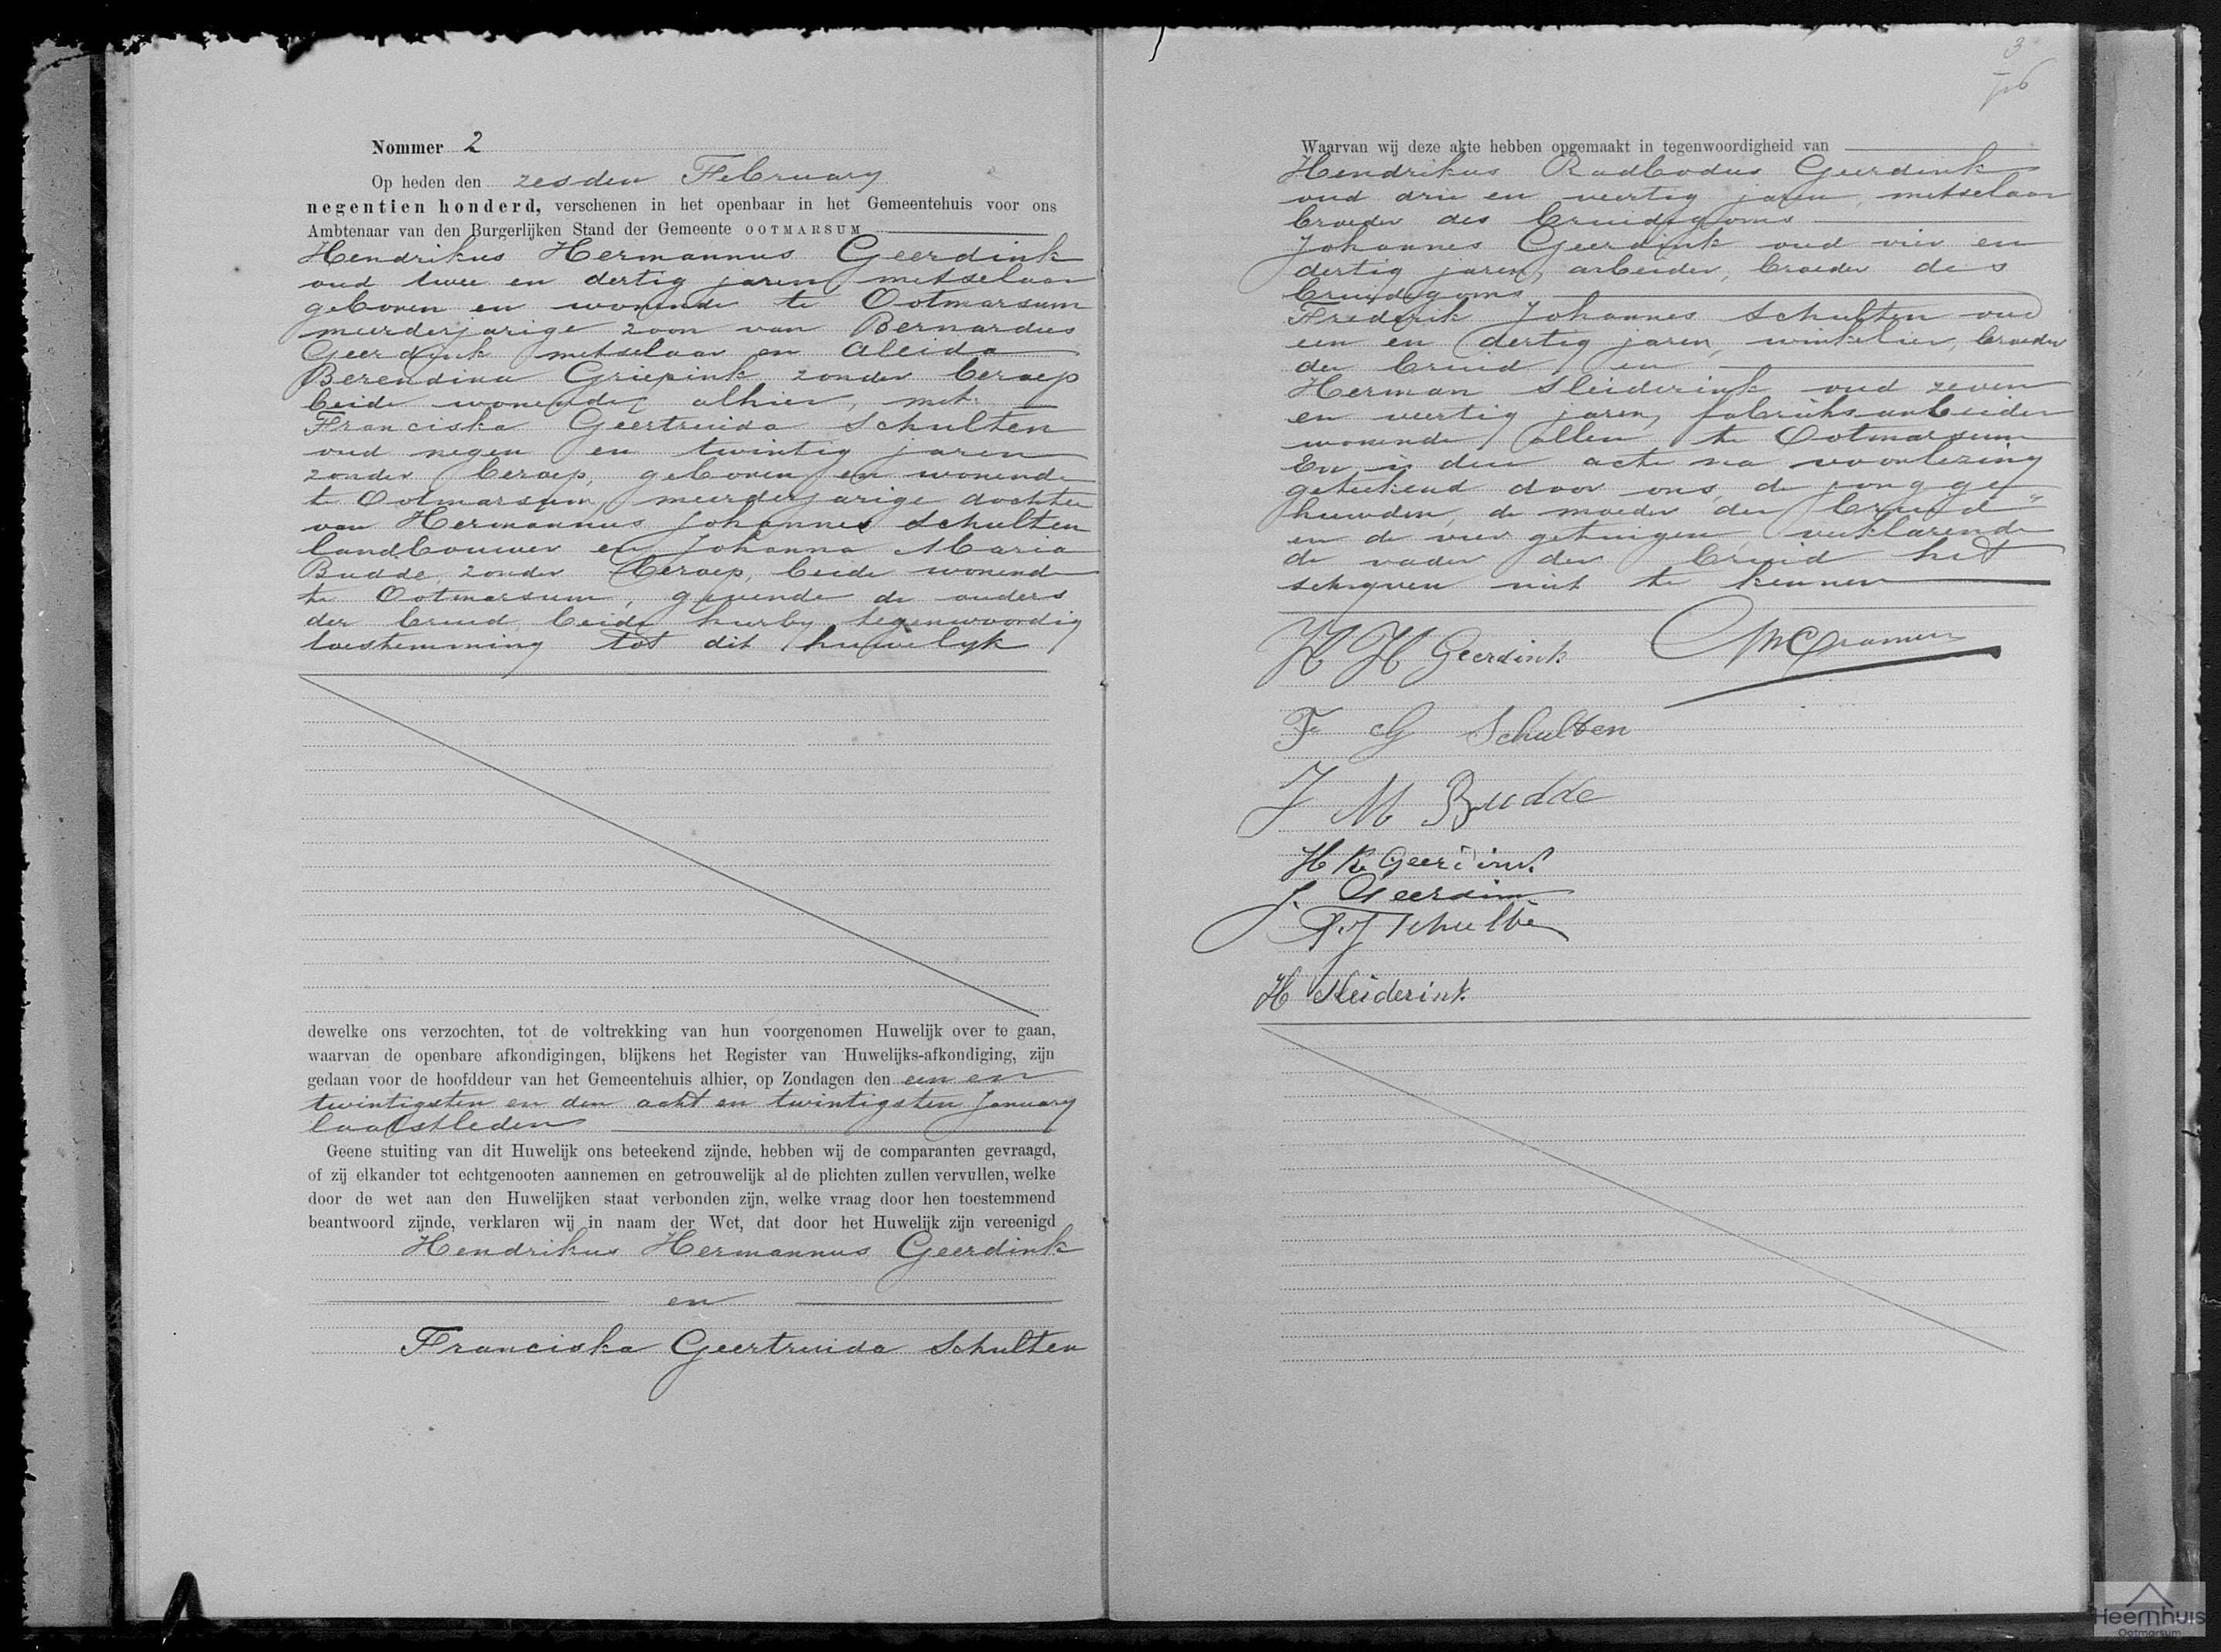 Nommer 2
Op heden den zesden February
negentien honderd, verschenen in het openbaar in het Gemeentehuis voor ons
Ambtenaar van den Burgerlijken Stand der Gemeente OOTMARSUM
Hendrikus Hermannus Geerdink
oud twee en dertig jaren metselaar
geboren en wonende te Ootmarsum
meerderjarige zoon van Bernardus
Geerdink metselaar en Aleida
Berendina Griepink zonder beroep
beide wonende alhier, met
Franciska Geertruida Schulten
oud negen en twintig jaren
zonder beroep, geboren en wonende
te Ootmarsum, meerderjarige dochter
van Hermannus Johannes Schulten
landbouwer en Johanna Maria
Budde, zonder beroep, beide wonende
te Ootmarsum, gevende de ouders
der bruid beide hierby tegenwoordig
toestemming tot dit huwelyk
dewelke ons verzochten, tot de voltrekking van hun voorgenomen Huwelijk over te gaan,
waarvan de openbare afkondigingen, blijkens het Register van Huwelijks-afkondiging, zijn
gedaan voor de hoofddeur van het Gemeentehuis alhier, op Zondagen den een en
twintigsten en den acht en twintigsten January
laatstleden
Geene stuiting van dit Huwelijk ons beteekend zijnde, hebben wij de comparanten gevraagd,
of zij elkander tot echtgenooten aannemen en getrouwelijk al de plichten zullen vervullen, welke
door de wet aan den Huwelijken staat verbonden zijn, welke vraag door hen toestemmend
beantwoord zijnde, verklaren wij in naam der Wet, dat door het Huwelijk zijn vereenigd
Hendrikus Hermannus Geerdink
en
Franciska Geertruida Schulten
3
Waarvan wij deze akte hebben opgemaakt in tegenwoordigheid van
Hendrikus Radbodus Geerdink
oud drie en veertig jaren, metselaar
broeder des bruidegoms
Johannes Geerdink oud vier en
dertig jaren, arbeider, broeder des
bruidegoms
Frederik Johannes Schulten oud
een en dertig jaren, winkelier, broeder
der bruid, en
Herman Sleiderink oud zeven
en veertig jaren, fabrieksarbeider
wonende allen te Ootmarsum
En is deze acte na voorlezing
geteekend door ons, de jongge
huwden, de moeder der bruid
en de vier getuigen, verklarende
de vader der bruid het
schryven niet te kennen
H H Geerdink
F G Schulten
J M Budde
H R Geerdink
J. Geerdink
F J Schulten
H Sleiderink
Heernhuis
Ootmarsum